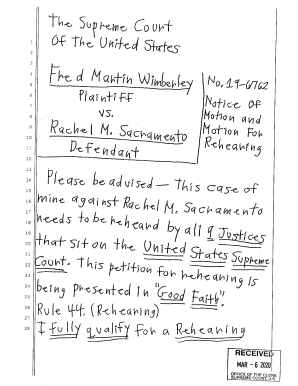 The Supreme Court
Of The United States
Fred Martin Wimberley
Plaintiff
vs.
Rachel M. Sacramento
Defendant
No. 19-6762
Notice Of
Motion and
Motion For
Rehearing
Please be advised — This case of
mine against Rachel M. Sacramento
needs to be reheard by all 9 Justices
that sit on the United States Supreme
Court. This petition for rehearing is
being presented in "Good Faith".
Rule 44. (Rehearing)
I fully qualify for a Rehearing
RECEIVED
MAR - 6 2020
OFFICE OF THE CLERK
SUPREME COURT, U.S.